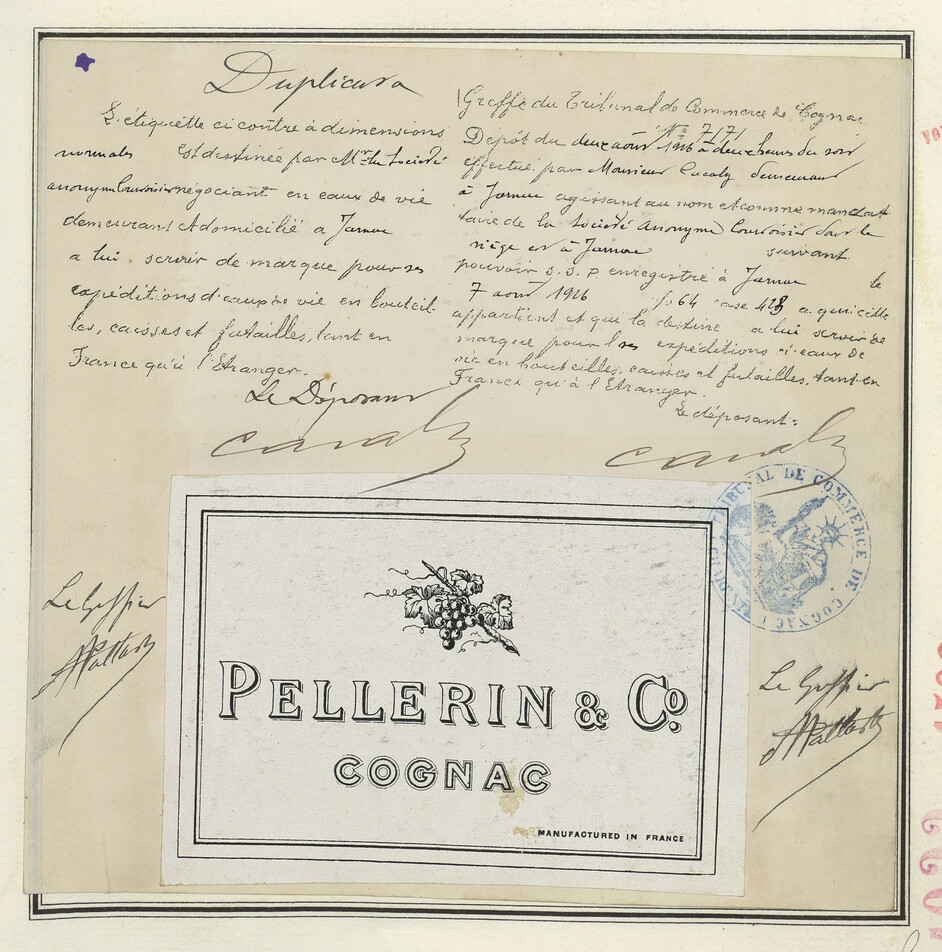 Duplicata
L'étiquette ci contre à dimensions
normales Est destinée par Mr. la Société
anonyme Courvoisier négociant en eaux de vie
demeurant et domicilié a Jarnac
a lui servir de marque pour ses
expéditions d'eaux de vie en bouteil
les, caisses et futailles, tant en
France qu'à l'Etranger.
Le Déposant
Greffe du Tribunal de Commerce de Cognac
No 7171
Dépôt du deux août 1916 à deux heures du soir
effectué par Monsieur demeurant
à Jarnac agissant au nom et comme manda
taire de la Société Anonyme Courvoisier dont le
siège est à Jarnac suivant
pouvoir s.s.p enregistré à Jarnac le
7 août 1916 fo 64 case 428 a qui cette
appartient et qui la destine a lui servir de
marque pour les expéditions d'eaux de
vie en bouteilles, caisses et futailles, tant en
France qu'à l'Etranger.
Le déposant:
TRIBUNAL DE COMMERCE DE COGNAC
Le Greffier
Le Greffier
PELLERIN & Co.
COGNAC
MANUFACTURED IN FRANCE